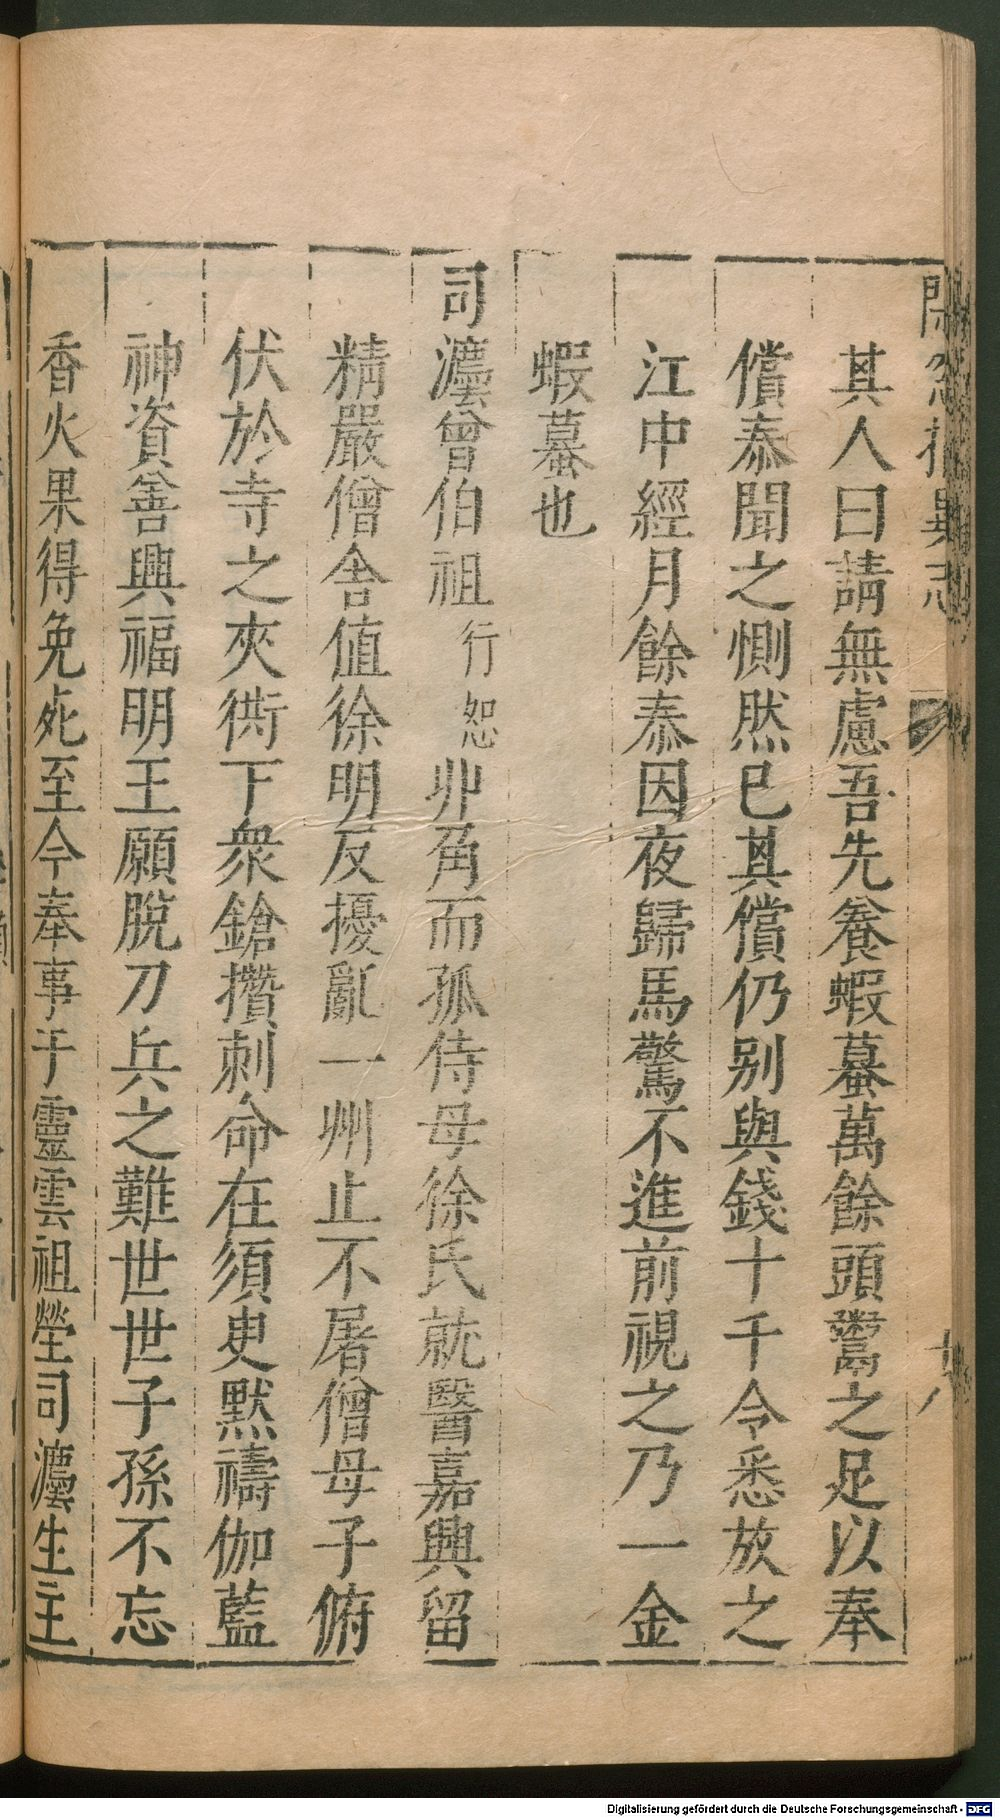 其人曰請無慮吾先養蝦蟇萬餘頭鬻之足以奉
償泰聞之惻然已其償仍别與錢十千令悉放之
江中經月餘泰因夜歸馬驚不進前視之乃一金
蝦蟇也
司灋曾伯祖行恕丱角而孤侍母徐氏就醫嘉興留
精嚴僧舍值徐明反擾亂一州止不屠僧母子俯
伏於寺之夾衖下衆鎗攢刺命在須臾默禱伽藍
神資善興福明王願脫刀兵之難世世子孫不忘
香火果得免死至今奉事于靈雲祖塋司灋生主
Digitalisierung gefördert durch die Deutsche Forschungsgemeinschaft - DFG